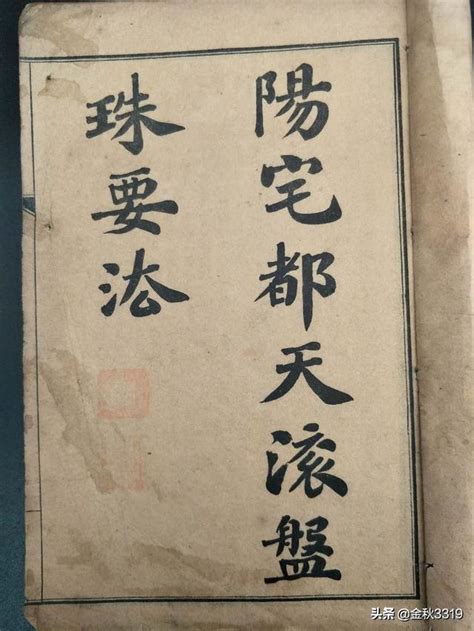 陽宅都天滚盤
珠要法
头条 @金秋3319